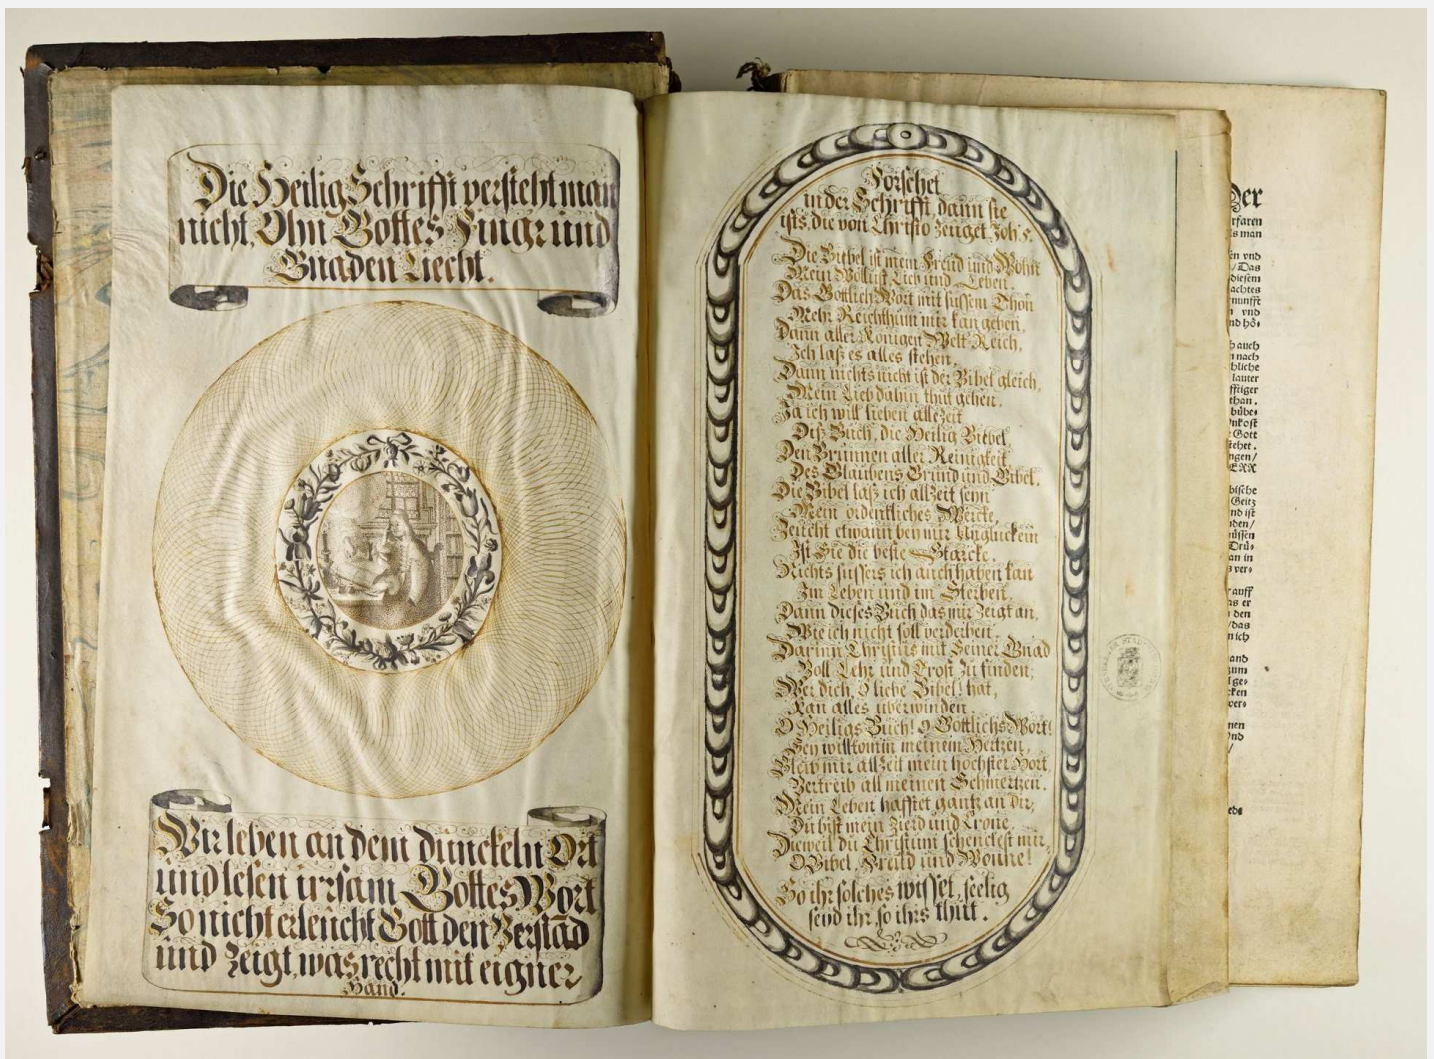 Die Heilig Schrifft versteht man
nicht, Ohn Gottes Fingr und
Gnaden Liecht.
Wir leben an dem dunckeln Ort
und lesen irrsam Gottes Wort
So nicht erleucht Gott den Verstād
und Zeigt, was recht mit eigner
Hand.
Forschet
in der Schrifft, dann sie
ists, die von Christo Zeuget. Joh. 5.
Die Biebel ist mein Freud und Wohn
Mein Wollust Lieb und Leben.
Das Gottlich Wort mit sussem Thon
Mehr Reichthum mir kan geben,
Dann aller Königen Welt Reich,
Ich laß es alles stehen,
Dann nichts nicht ist der Bibel gleich,
Mein Lieb dahin thut gehen.
Ja ich will lieben allezeit
Diß Buch, die Heilig Biebel,
Den Brunnen aller Reinigkeit
Des Glaubens Grund und Gibel.
Die Bibel laß ich allzeit seyn
Mein ordentliches Wercke,
Zeucht etwann bey mir Ungluck ein
Ist Sie die beste Starcke.
Nichts sussers ich auch haben kan
Im Leben und im Sterben,
Dann dieses Buch das mir Zeigt an,
Wie ich nicht soll verderben.
Darinn Christus mit Seiner Gnad
Voll Lehr und Trost Zu finden;
Wer dich, O liebe Bibel! hat,
Kan alles uberwinden
O Heiligs Buch! O Gottlichs Wort!
Sey willkomm meinem Hertzen,
Bleib mir allzeit mein hochster Hort
Vertreib all meinen Schmertzen.
Mein Leben hafftet gantz an dir,
Du bist mein Zierd und Crone
Dieweil du Christum schenckest mir,
O Bibel, Freud und Wonne!
So ihr solches wisset, seelig
seyd ihr so ihrs thut.